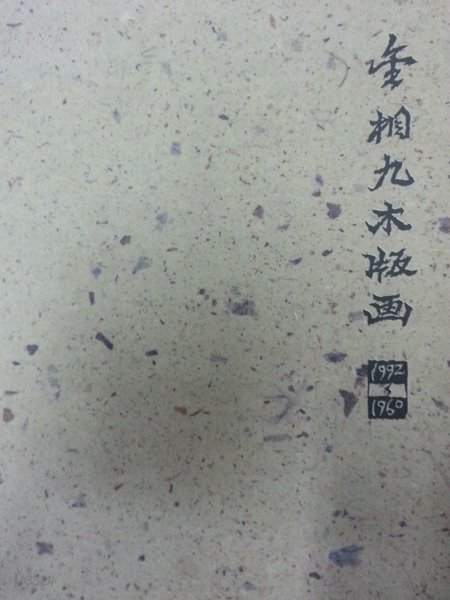 金相九木版画
1992
~
1960